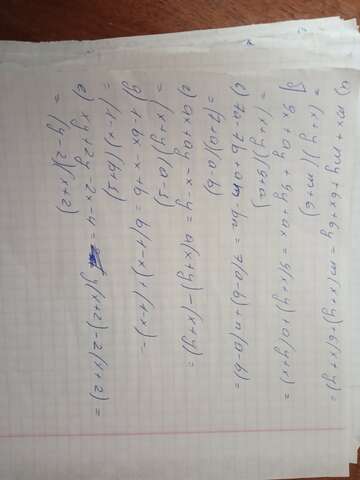 а) mx + my + 6x + 6y = m(x+y) + 6(x+y) =
= (x+y)(m+6)
б) 9x + ay + 9y + ax = 9(x+y) + a(y+x) =
= (x+y)(9+a)
в) 7a - 7b + an - bn = 7(a-b) + n(a-b) =
= (7+n)(a-b)
г) ax + ay - x - y = a(x+y) - (x+y) =
= (x+y)(a-1)
д) 1 - bx - x + b = b(1-x) + (1-x) =
= (1-x)(b+1)
е) xy + 2y - 2x - 4 = y(x+2) - 2(x+2) =
= (y-2)(x+2)